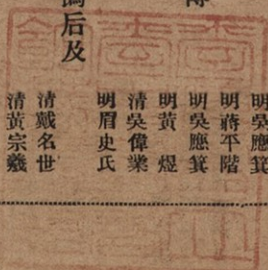 明吳應箕
明蔣平階
明吳應箕
明黃煜
清吳偉業
明眉史氏
后及
清戴名世
清黃宗羲